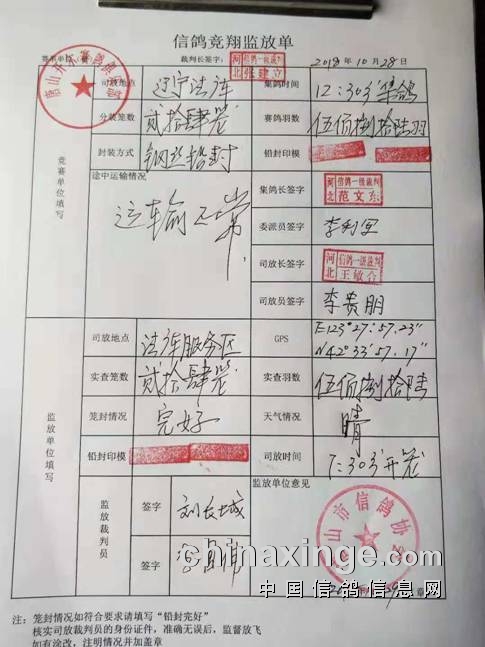 信鸽竞翔监放单
裁判长签字: 河北 信鸽一级裁判 张建立 2018年10月28日
司放地点 辽宁法库 集鸽时间 12:30分集鸽
分装笼数 贰拾肆笼 赛鸽羽数 伍佰捌拾陆羽
封装方式 钢丝铅封 铅封印模
竞赛单位填写
途中运输情况 运输正常
集鸽长签字 河北 信鸽一级裁判 范文东
委派员签字
司放长签字 河北 信鸽一级裁判 王敏合
司放员签字 李贵朋
司放地点 法库服务区 GPS E123°27'57.23"
N42°33'57.17"
实查笼数 贰拾肆笼 实查羽数 伍佰捌拾陆
笼封情况 完好 天气情况 晴
铅封印模 司放时间 7:30分开笼
监放单位填写
监放裁判员
签字 刘长城
签字
监放单位意见
山市信鸽协
chinaxinge.com
中国信鸽信息网
注: 笼封情况如符合要求请填写“铅封完好”
核实司放裁判员的身份证件,准确无误后,监督放飞
如有涂改,注明情况并加盖章